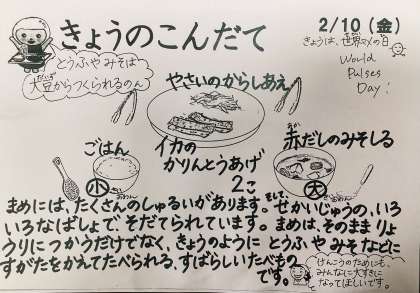 きょうのこんだて
2/10(金)
きょうは、世界マメの日
World
Pulses
Day!
とうふやみそは
だいず
大豆からつくられるのん
やさいのからしあえ
イカの
かりんとうあげ
2こ
ごはん
小
あか
赤だしのみそしる
大
まめには、たくさんのしゅるいがあります。そして、せかいじゅうの、いろ
いろなばしょで、そだてられています。まめは、そのままりょ
うりにつかうだけでなく、きょうのように とうふ や みそなどに
すがたをかえてたべられる、すばらしいたべもの
です。
けんこうのためにも、
みんなに大すきに
なってほしいです。